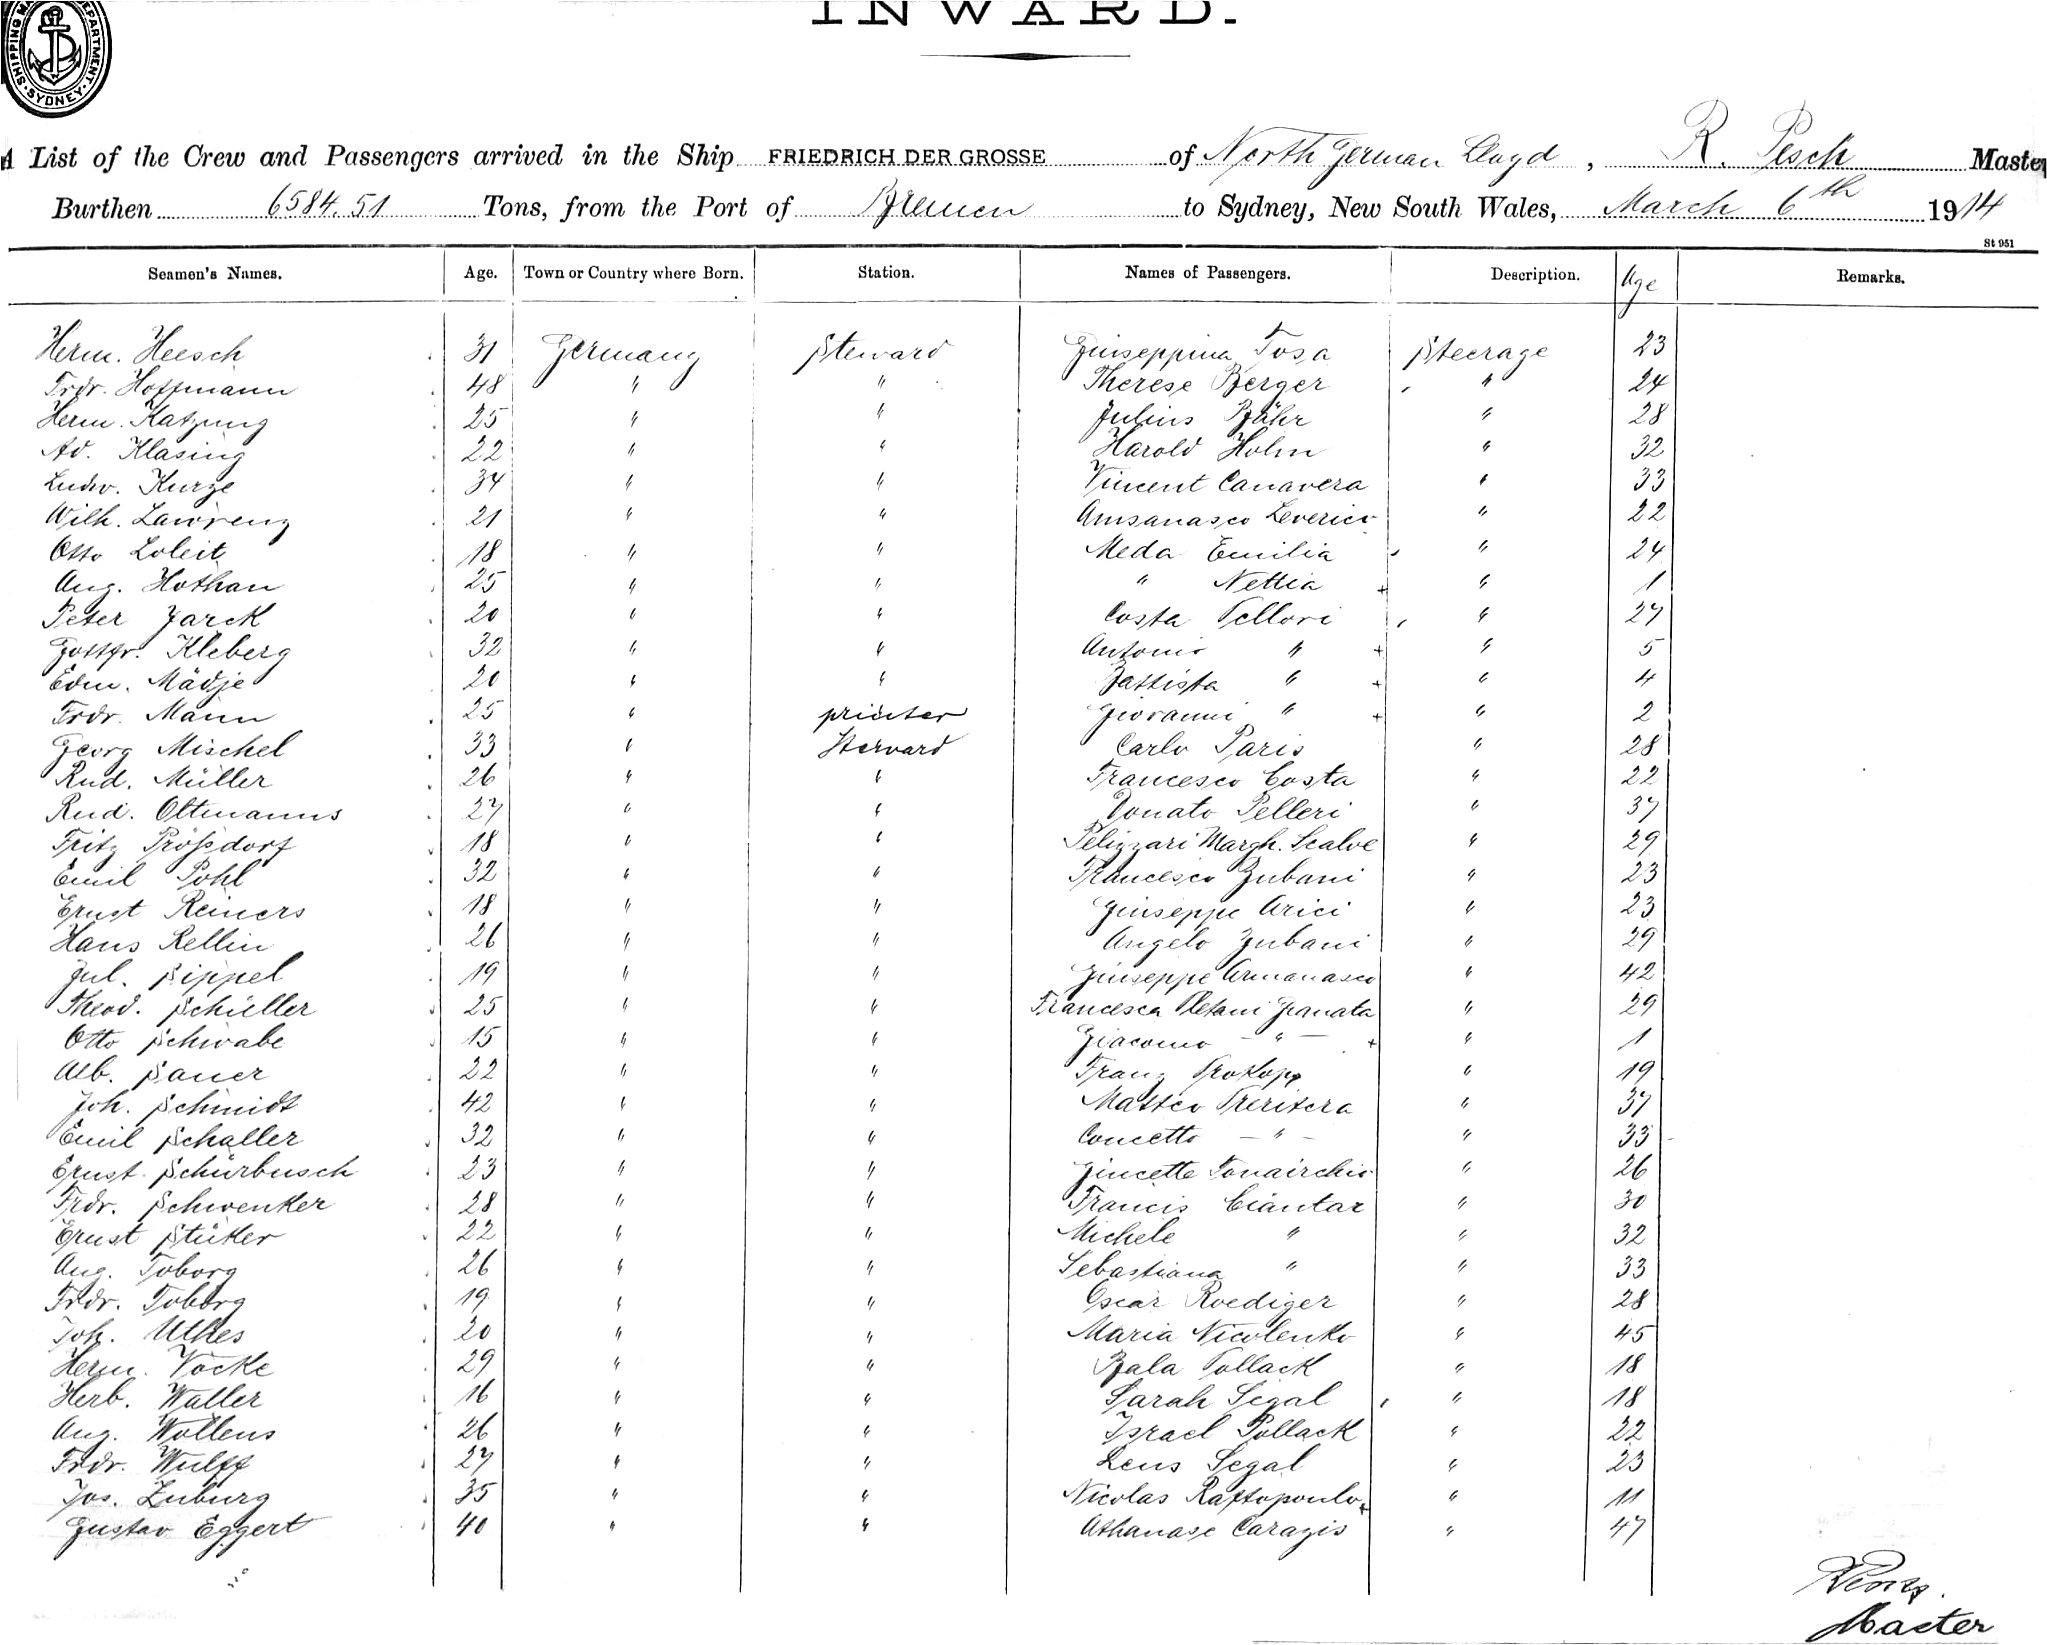 SHIPPING MA DEPARTMENT. SYDNEY.
INWARD.
A List of the Crew and Passengers arrived in the Ship FRIEDRICH DER GROSSE of North German Lloyd, R. Pesch Master
Burthen 6584.51 Tons, from the Port of Bremen to Sydney, New South Wales, March 6th 1914
St 951
Seamen's Names. Age. Town or Country where Born. Station. Names of Passengers. Description. Age Remarks.
Herm. Heesch 31 Germany Steward Giuseppina Tosa Steerage 23
Frdr. Hoffmann 48 " " Therese Berger " 24
Herm. Katzung 25 " " Julius Bähr " 28
Ad. Klasing 22 " " Harold Holm " 32
Ludw. Kurze 34 " " Vincent Canavera " 33
Wilh. Lawrenz 21 " " " 22
Otto Loleit 18 " " Meda Emilia " 24
Aug. Hothan 25 " " " Nettia + " 1
Peter Jarck 20 " " Costa Pellori " 27
Gottfr. Kleberg 32 " " Antonio " + " 5
Edm. Mädje 20 " " Battista " + " 4
Frdr. Mann 25 " printer Giovanni " + " 2
Georg Mischel 33 " Steward Carlo Paris " 28
Rud. Müller 26 " " Francesco Costa " 22
Rud. Oltmanns 27 " " Donato Pelleri " 37
Fritz Prößdorf 18 " " Pelizzari Margh. Scalve " 29
Emil Pohl 32 " " Francesco Zubani " 23
Ernst Reiners 18 " " Giuseppe Arici " 23
Hans Rellin 26 " " Angelo Zubani " 29
Jul. Sippel 19 " " Giuseppe Armanasco " 42
Theod. Schieller 25 " " Francesca Granata " 29
Otto Schwabe 15 " " Giacomo - " - + " 1
Alb. Sauer 22 " " Franz Prokopp " 19
Joh. Schmidt 42 " " Matteo " 37
Emil Schaller 32 " " Concetto - " - " 33
Ernst Schürbusch 23 " " " 26
Frdr. Schwenker 28 " " Francis Ciantar " 30
Ernst Stüker 22 " " Michele " " 32
Aug. Toborg 26 " " Sebastiana " " 33
Frdr. Toborg 19 " " Oscar Roediger " 28
Joh. Uthes 20 " " Maria Nicolenko " 45
Herm. Vocke 29 " " Bala Pollack " 18
Herb. Waller 16 " " Sarah Segal " 18
Aug. Woltens 26 " " Israel Pollack " 22
Frdr. Wulff 27 " " Segal " 23
Jos. Zuburg 35 " " Nicolas Raftopoulo + " 11
Gustav Eggert 40 " " Athanase Carazis " 47
Master